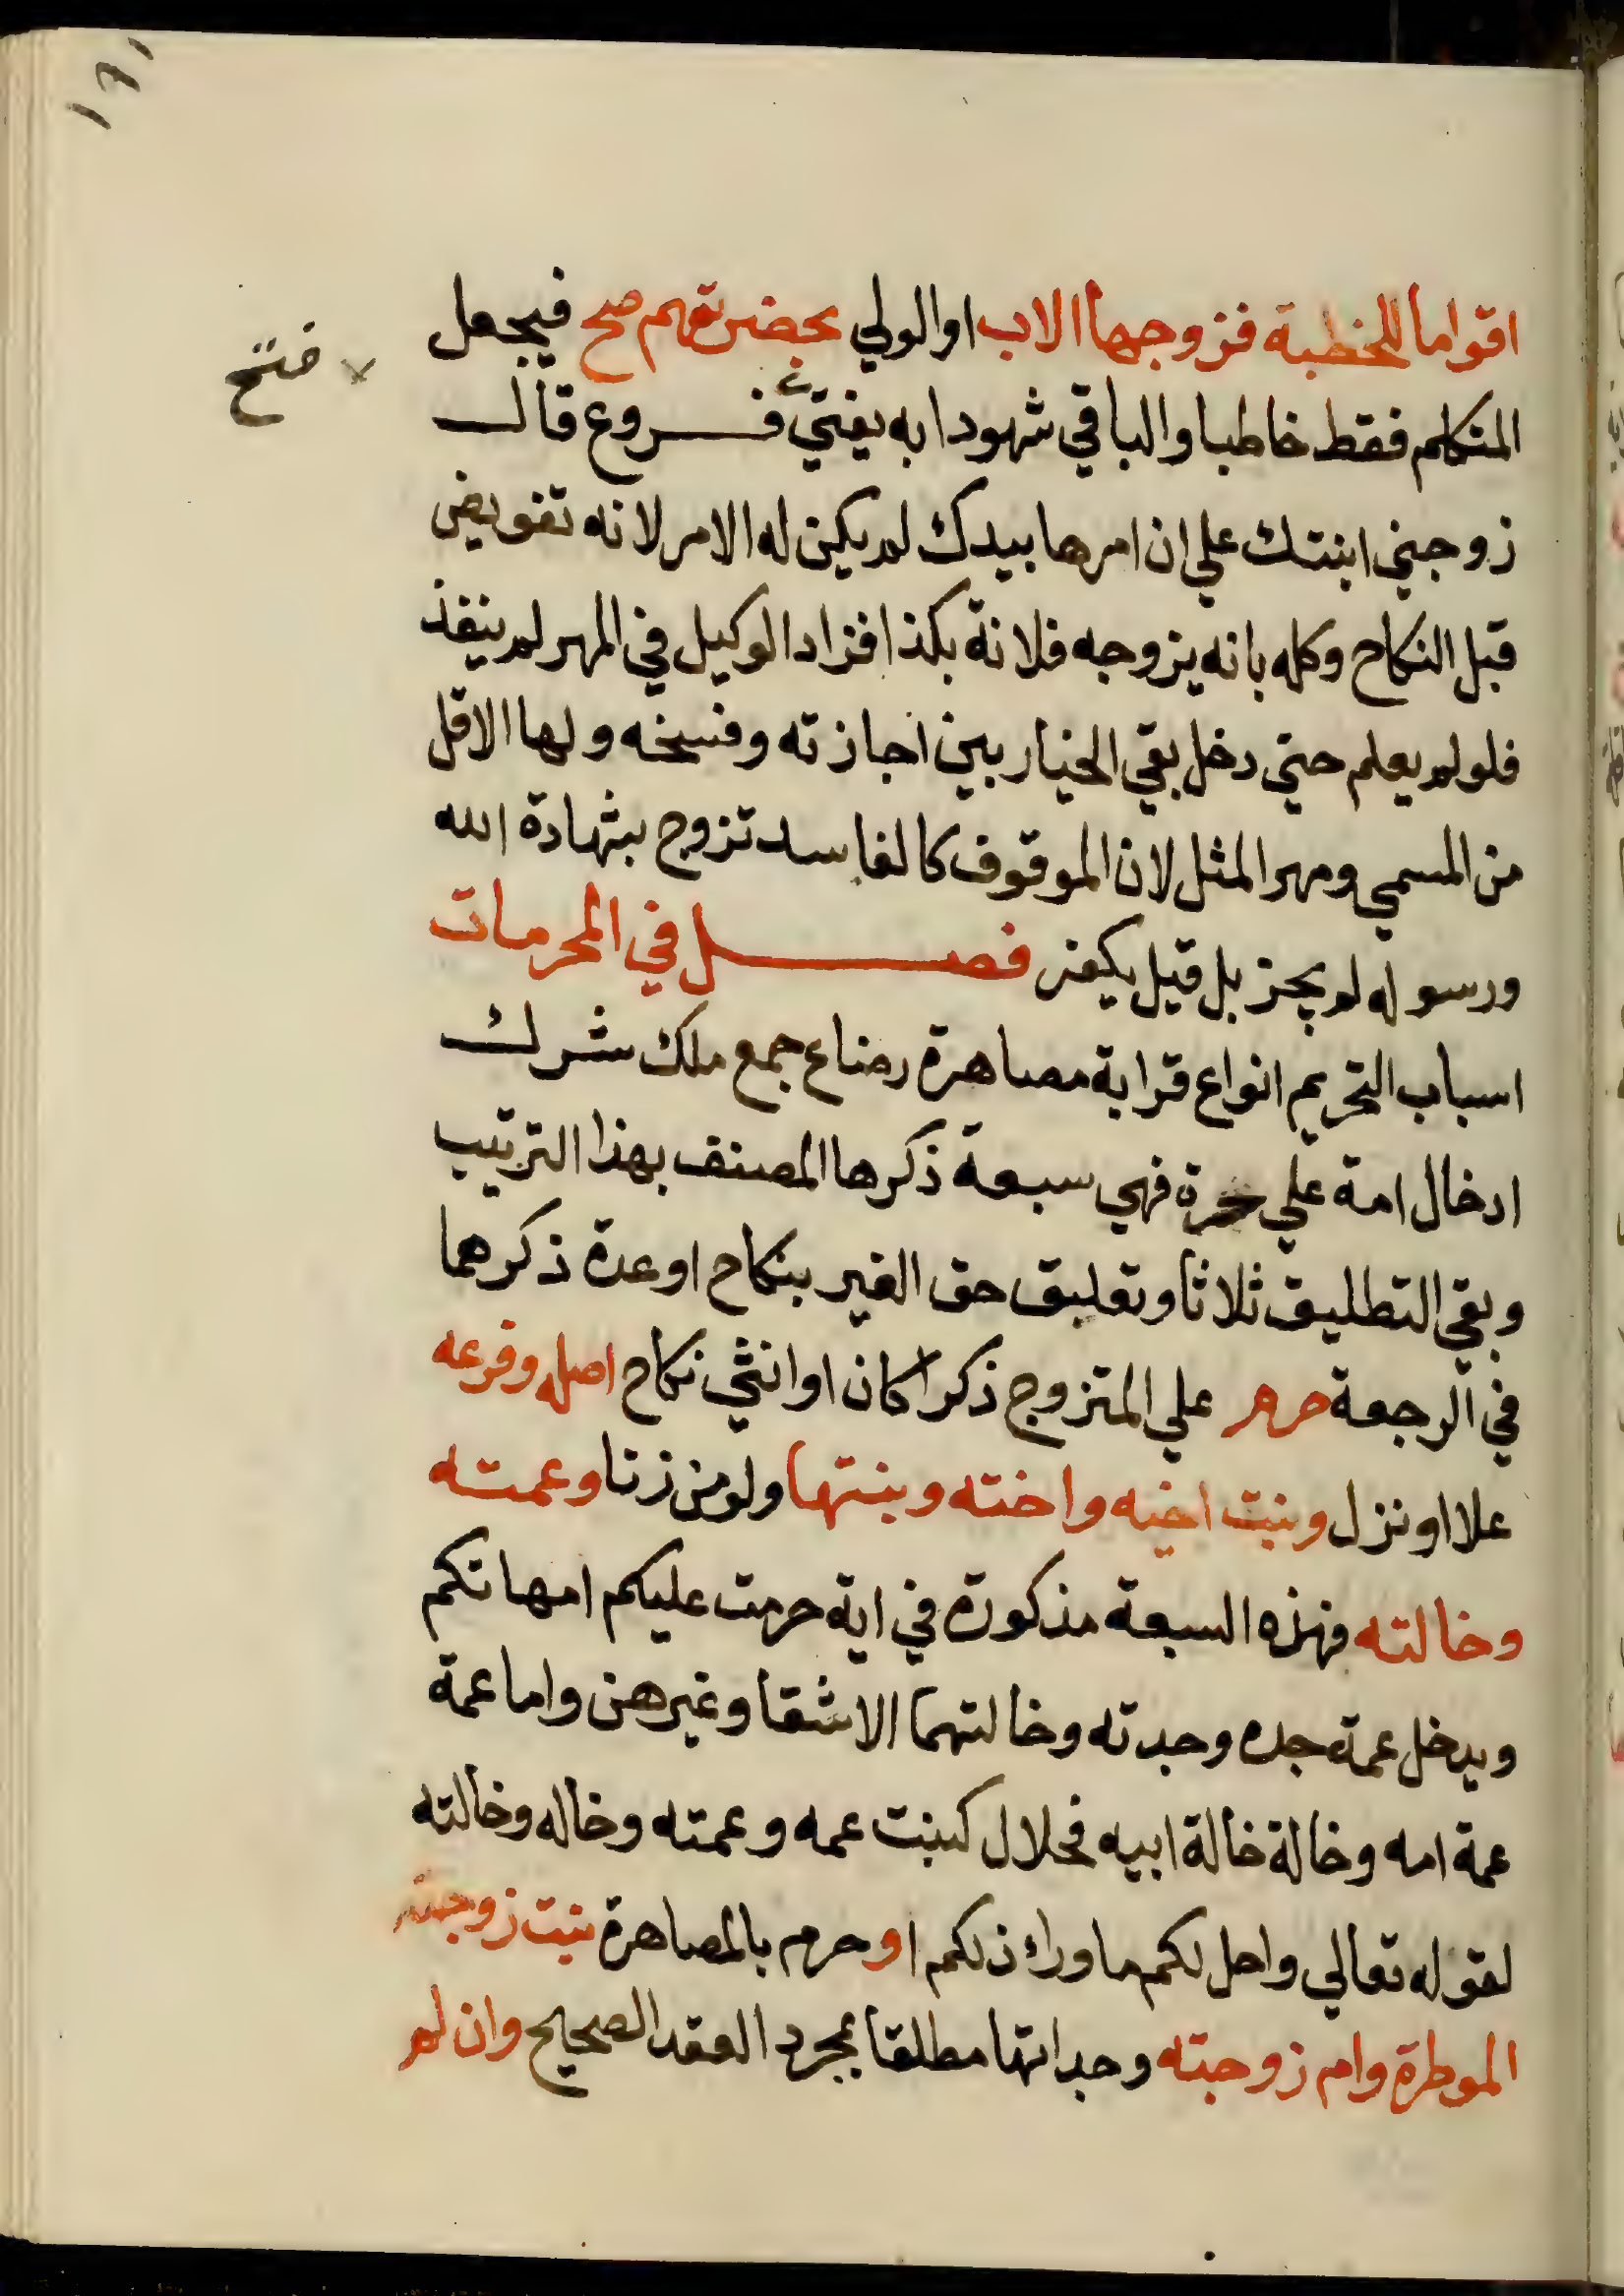 ١٣١
اقواما للخطبة فزوجها الاب او الولي بحضرتهم صح فيجعل
المتكلم فقط خاطبا والباقي شهودا به يفتي فروع قال
× فتح
زوجني ابنتك علي ان امرها بيدك لم يكن له الامر لانه تفويض
قبل النكاح وكله بانه يزوجه فلانة بكذا فزاد الوكيل في المهر لم ينفذ
فلو لم يعلم حتي دخل بقي الخيار بين اجازته وفسخه ولها الاقل
من المسمي ومهر المثل لان الموقوف كالفاسد تزوج بشهادة الله
ورسوله لم يجز بل قيل يكفر فصل في المحرمات
اسباب التحريم انواع قرابة مصاهرة رضاع جمع ملك شرك
ادخال امة علي حرة فهي سبعة ذكرها المصنف بهذا الترتيب
وبقي التطليق ثلاثا وتعليق حق الغير بنكاح او عدة ذكرهما
في الرجعة حرم علي المتزوج ذكرا كان او انثي نكاح اصله وفرعه
علا او نزل وبنت اخيه واخته وبنتها ولو من زنا وعمته
وخالته فهذه السبعة مذكورة في اية حرمت عليكم امهاتكم
ويدخل عمة جده وجدته وخالتهما الاشقا وغيرهن واما عمة
عمة امه وخالة خالة ابيه فحلال كبنت عمه وعمته وخاله وخالته
لقوله تعالي واحل لكم ما وراء ذلكم او حرم بالمصاهرة بنت زوجته
الموطوة وام زوجته وجداتها مطلقا بمجرد العقد الصحيح وان لم